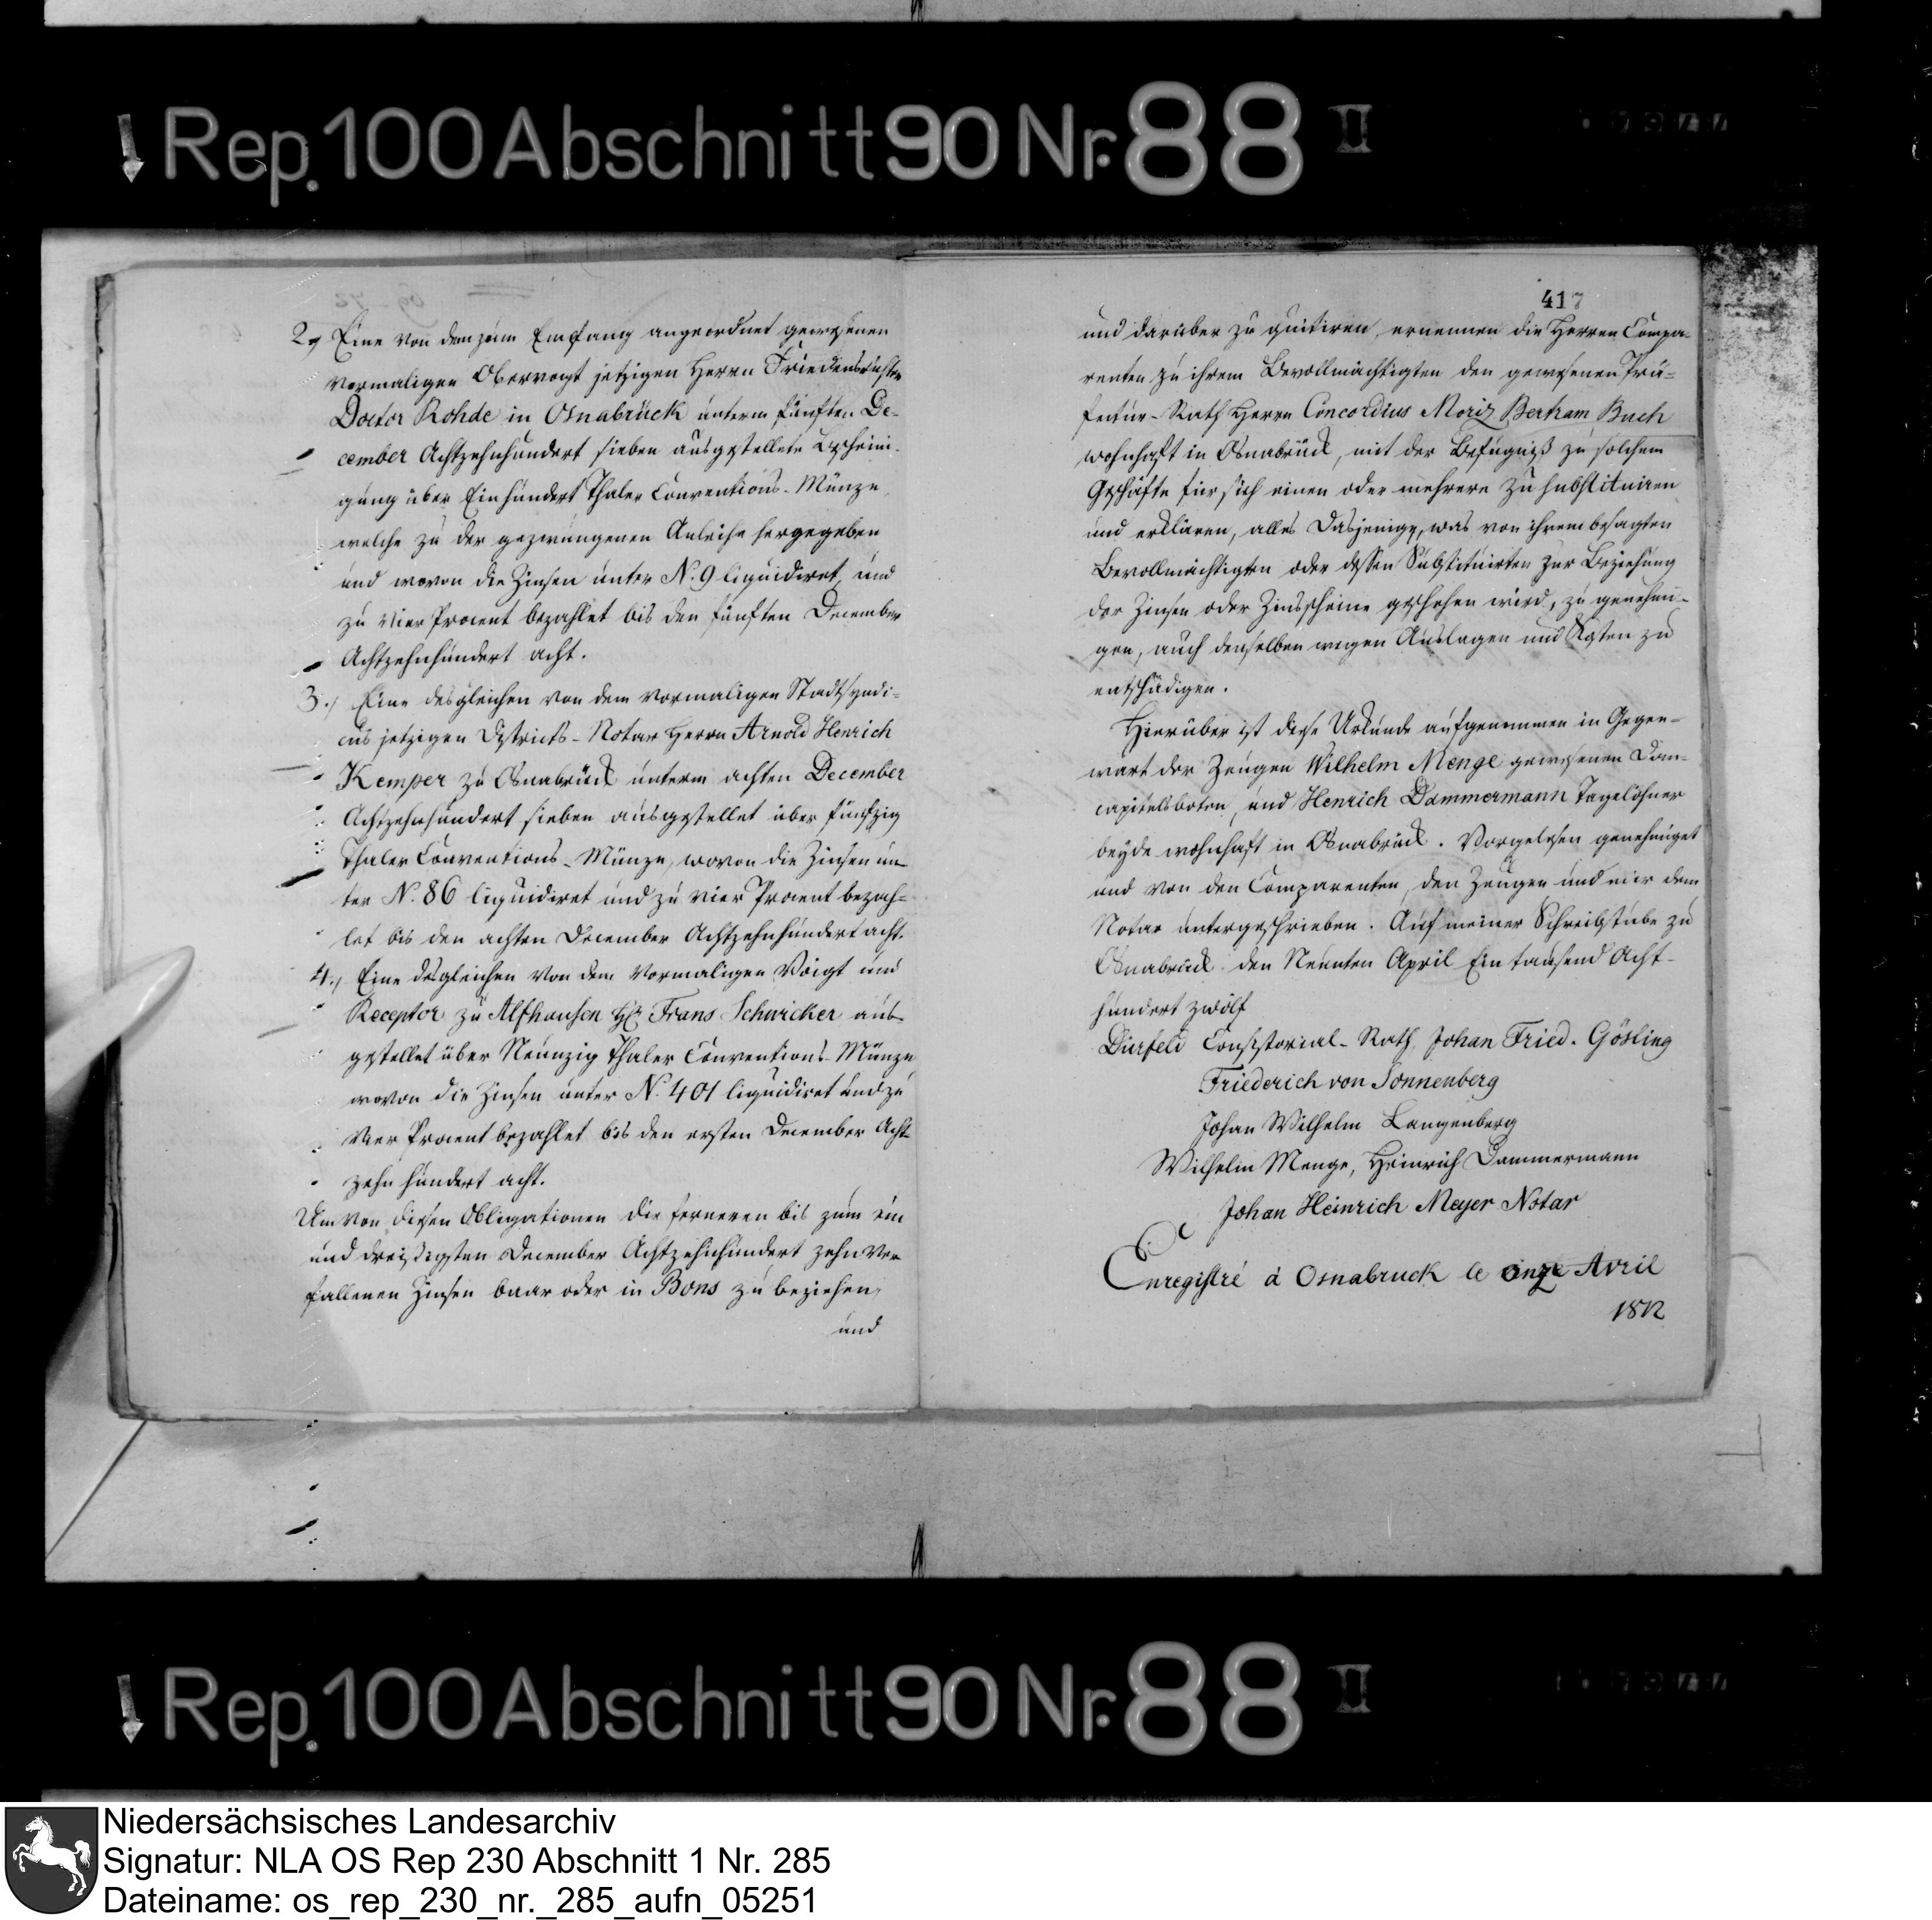 Rep. 100 Abschnitt 90 Nr. 88 II
2., Eine von dem zum Empfang angeordnet gewesenen
vormaligen Obervogt jetzigen Herrn Friedensrichter
Doctor Rohde in Osnabrück unterm fünften De-
cember Achtzehnhundert sieben ausgestellete Bescheini-
gung über Einhundert Thaler Conventions-Münze
welche zu der gezwungenen Anleihe hergegeben
und wovon die Zinsen unter N. 9 liquidiret, und
zu vier Procent bezahlet bis den fünften December
Achtzehnhundert acht.
3., Eine desgleichen von dem vormaligen Stadtsyndi-
cus jetzigen Districts-Notar Herrn Arnold Henrich
Kemper zu Osnabrück unterm achten December
Achtzehnhundert sieben ausgestellet über fünfzig
Thaler Conventions-Münze, wovon die Zinsen un-
ter N. 86 liquidiret und zu vier Procent bezah-
let bis den achten December Achtzehnhundert acht.
4., Eine desgleichen von dem vormaligen Voigt und
Receptor zu Alfhausen Hr. Frans Schwicker aus-
gestellet über Neunzig Thaler Conventions-Münze
wovon die Zinsen unter N. 401 liquidiret und zu
vier Procent bezahlet bis den ersten December Acht-
zehn hundert acht.
Um von diesen Obligationen die ferneren bis zum ein
und dreißigsten December Achtzehnhundert zehn ver-
fallenen Zinsen baar oder in Bons zu beziehen,
und
417
und darüber zu quitiren, ernennen die Herren Compa-
renten zu ihrem Bevollmächtigten den gewesenen Prä-
fectur-Rath Herrn Concordius Moriz Bertram Buch
wohnhaft in Osnabrück, mit der Befugniß zu solchem
Geschäfte für sich einen oder mehrere zu substituiren
und erklären, alles dasjenige, was von ihrem besagten
Bevollmächtigten oder dessen Substituirten zur Beziehung
der Zinsen oder Zinsscheine geschehen wird, zu genehmi-
gen, auch denselben wegen Auslagen und Kosten zu
entschädigen.
Hierüber ist diese Urkunde aufgenommen in Gegen-
wart der Zeugen Wilhelm Menge gewesenen Dom-
capitelsboten, und Henrich Dammermann Tagelöhner
beyde wohnhaft in Osnabrück. Vorgelesen genehmiget
und von den Comparenten, den Zeugen und mir dem
Notar untergeschrieben. Auf meiner Schreibstube zu
Osnabrück den Neunten April Ein tausend Acht-
hundert zwölf
Dürfeld Consistorial-Rath, Johan Fried. Gösling
Friederich von Sonnenberg
Johan Wilhelm Langenberg
Wilhelm Menge, Heinrich Dammermann
Johan Heinrich Meyer Notar
Enregistré à Osnabruck le onze Avril
1812
Rep. 100 Abschnitt 90 Nr. 88 II
Niedersächsisches Landesarchiv
Signatur: NLA OS Rep 230 Abschnitt 1 Nr. 285
Dateiname: os_rep_230_nr._285_aufn_05251